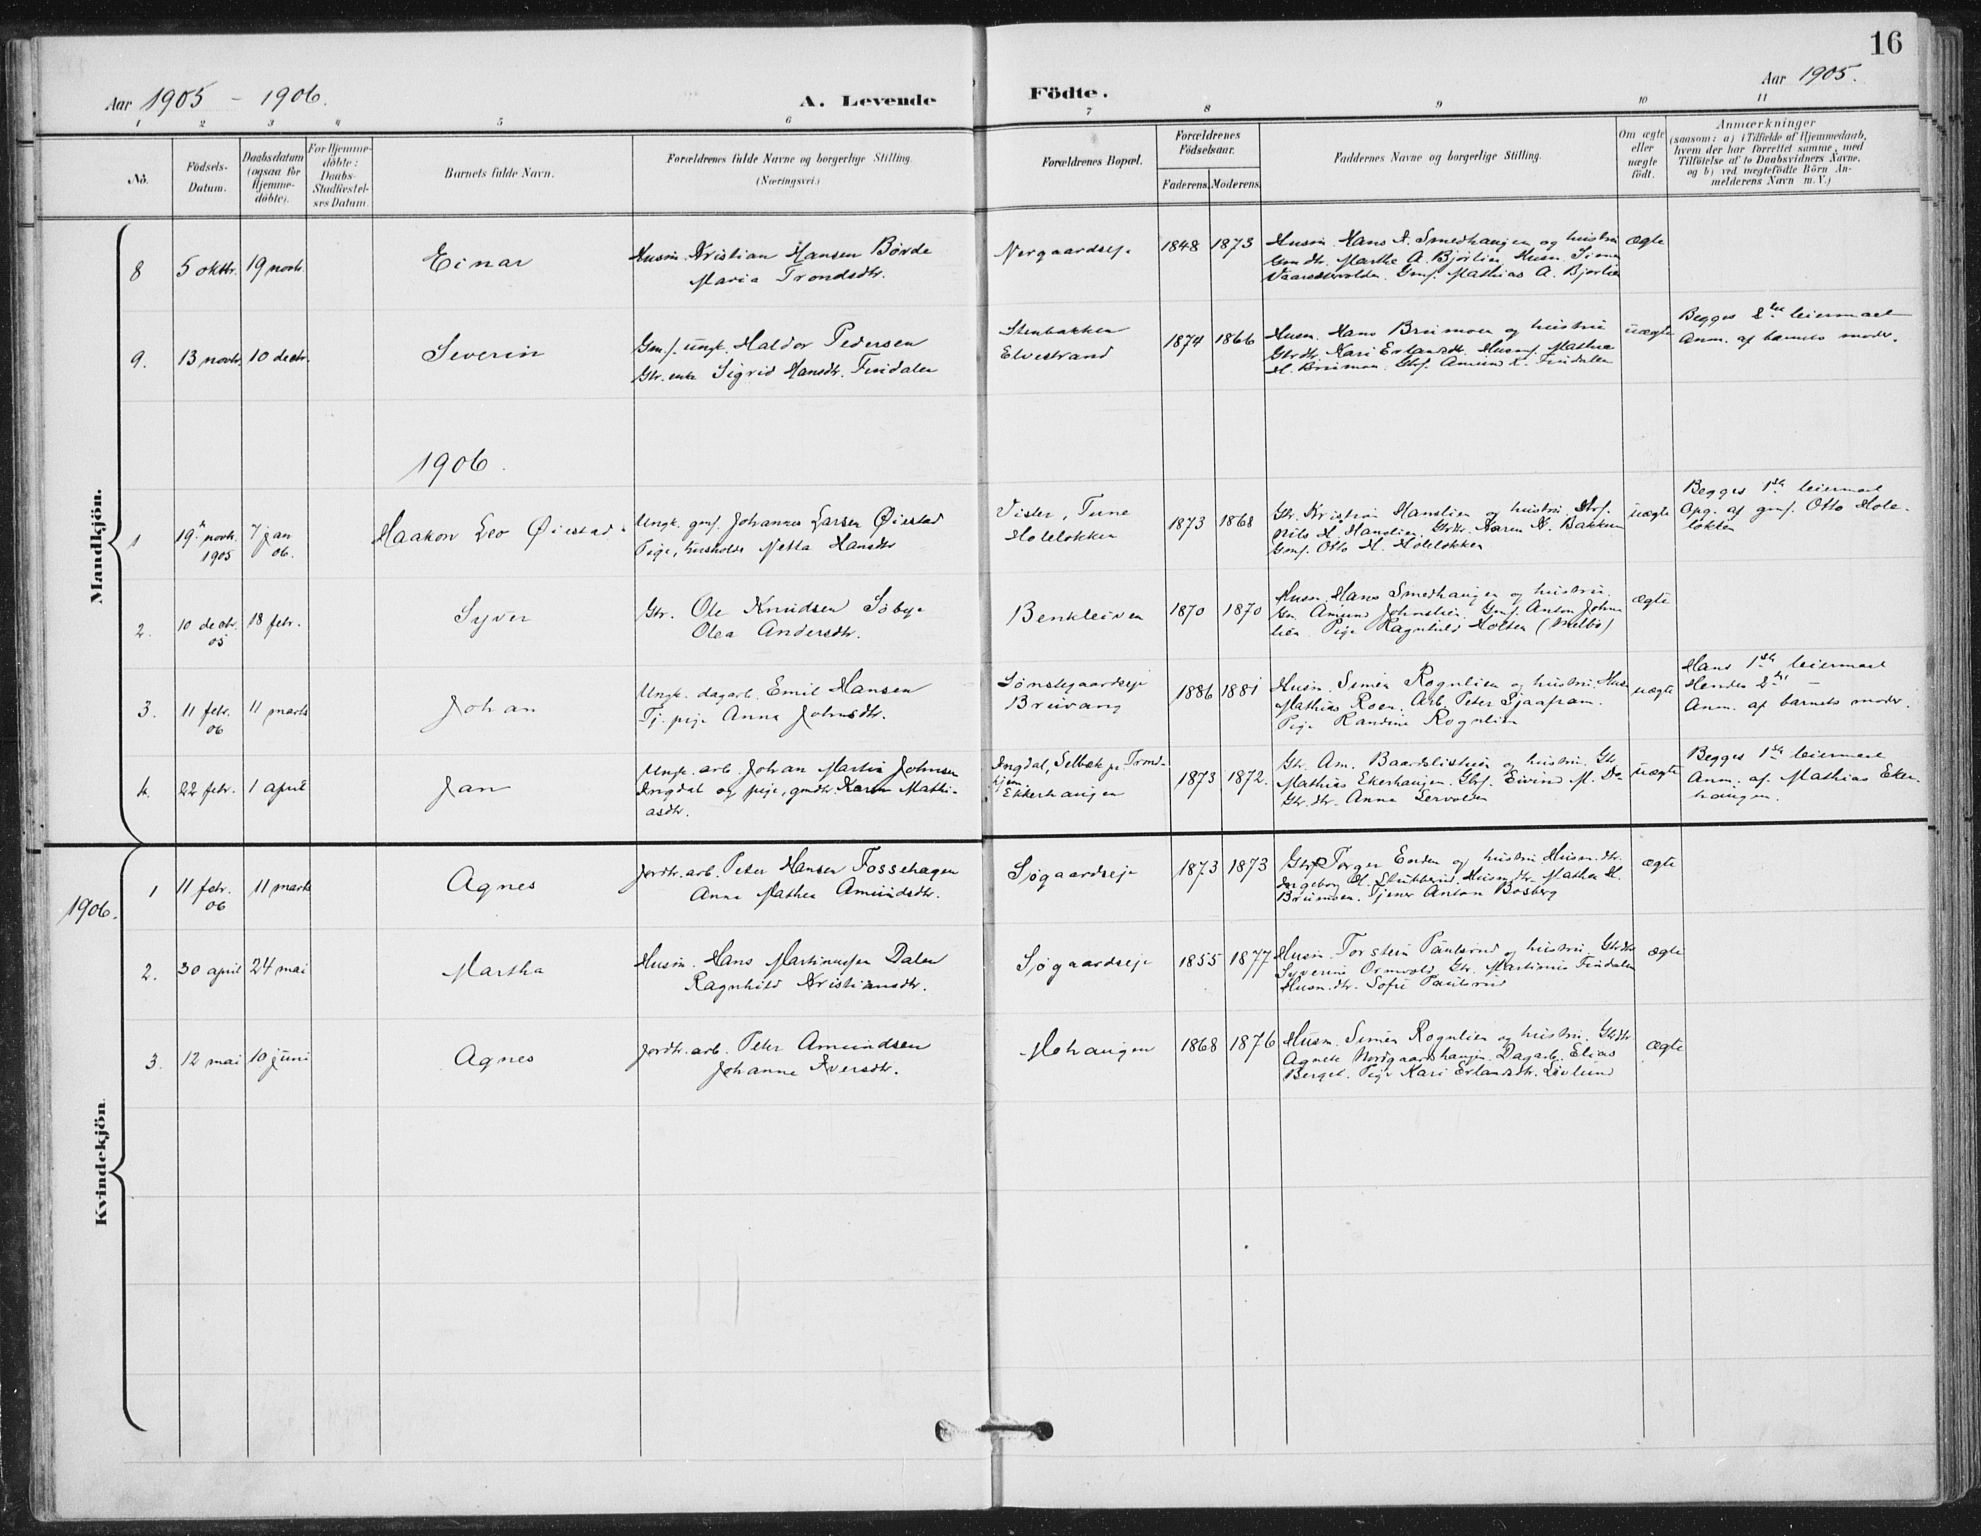 16
Aar 1905 - 1906.
A. Levende
Födte.
Aar 1905.
1 2 3 4 5 6 7 8 9 10 11
No.
Födsels-
Datum.
Daabsdatum
(ogsaa for
Hjemme-
döbte).
For Hjemme-
döbte:
Daabs-
Stadfæstel-
ses Datum.
Barnets fulde Navn.
Forældrenes fulde Navne og borgerlige Stilling.
(Næringsvei.)
Forældrenes Bopæl.
Forældrenes
Födselsaar.
Faderens. Moderens.
Faddernes Navne og borgerlige Stilling.
Om ægte
eller
uægte
födt.
Anmærkninger
(saasom: a) i Tilfælde af Hjemmedaab,
hvem der har forrettet samme, med
Tilföielse af to Daabsvidners Navne,
og b) ved uægtefödte Börn An-
melderens Navn m. V.)
Mandkjön.
8 5 oktbr. 19 novbr. Einar
Husm. Kristian Hansen Børde
Maria Trondsdtr.
Nergaardseje
1848 1873
Husm. Hans A. Smedhaugen og hustru
Gmdtr. Marthe A. Bjørlien, Husm. Simen
Gmf. Mathias A. Bjørlien
ægte
9. 13 novbr. 10 decbr. Severin
Gmf. ungk. Haldor Pedersen
Gbr. enke Sigrid Hansdtr. Findalen
Stenbakken
Elvestrand
1874 1866
Husm. Hans Brumoen og hustru
Gbrdtr. Kari Erlandsdtr. Husmf. Mathea
H. Brumoen. Gbf. Amund L. Findalen
uægte
Begges 2det leiermaal
Anm. af barnets moder.
1906.
1 19de novbr. 1905 7 jan 06. Haakon Leo Øiestad
Ungk. gmf. Johannes Larsen Øiestad
Pige, husholds Netta Hansdtr
Vister, Tune
Holeløkken
1873 1868
Gbr. Kristian Hanslien og hustru. Gbf.
Nils H. Hanslien. Gbrdtr. Karen K. Bakken
Gmf. Otto H. Holeløkken
uægte
Begges 1ste leiermaal
Opg. af gmf. Otto Hole-
løkken
2. 10 decbr. 05 18 febr. Syver
Gbr. Ole Knudsen Søbye
Olea Andersdtr.
Benkleiven
1870 1870
Husm. Hans Smedhaugen og hustru.
Gm. Amund Johnslien. Gmf. Anton Johns-
lien. Pige Ragnhild Holten (Melbö)
ægte
3. 11 febr. 06 11 marts Johan
Ungk. dagarb. Emil Hansen
Tj. pige Anna Johnsdtr.
Sønstegaardseje
Bruvang
1886 1881
Husm. Simen Rognlien og hustru. Husm.
Mathias Roen. Arb. Peter Sjaafram.
Pige Randine Rognlien
uægte
Hans 1ste leiermaal
Hendes 2det —
Anm. af barnets moder.
4. 22 febr. 1 april Jan
Ungk. arb. Johan Martin Johnsen
Ingdal og pige, gmdtr Karen Mathi-
asdtr.
Ingdal, Selbæk pr. Trond-
hjem
Ekkerhaugen
1873 1872.
Gbr. Am. Baardslistuen og hustru. Gbr
Mathias Ekerhaugen. Gbf. Eivind M. Do
Gbr. dtr. Anna Lervolden
uægte
Begges 1ste leiermaal
Anm. af Mathias Eker-
haugen.
1906.
Kvindekjön.
1 11 febr. 06 11 marts Agnes
Jordbr. arb. Peter Hansen Fossehagen
Anne Mathea Amundsdtr.
Søgaardseje
1873 1873
Gbr. Torger Enden og hustru Husm. dtr.
Ingeborg O. Skubberud. Husm. dtr. Mathea H.
Brumoen. Tjener Anton Bosberg
ægte
2. 30 april 24 mai Martha
Husm. Hans Martinussen Dalen
Ragnhild Kristiansdtr.
Søgaardseje
1855 1877
Husm. Torstein Paulsrud og hustru. Gbrdtr
Syverine Ormvold, Gbr. Martinus Findalen
Husm. dtr. Sofie Paulsrud
ægte
3. 12 mai 10 juni Agnes
Jordbr. arb. Peter Amundsen
Johanne Iversdtr.
Mohaugen
1868 1876
Husm. Simen Rognlien og hustru. Gbrdtr
Agnete Nordgaardshaugen. Dagarb. Elias
Berget. Pige Kari Erlandsdtr. Lövlund
ægte